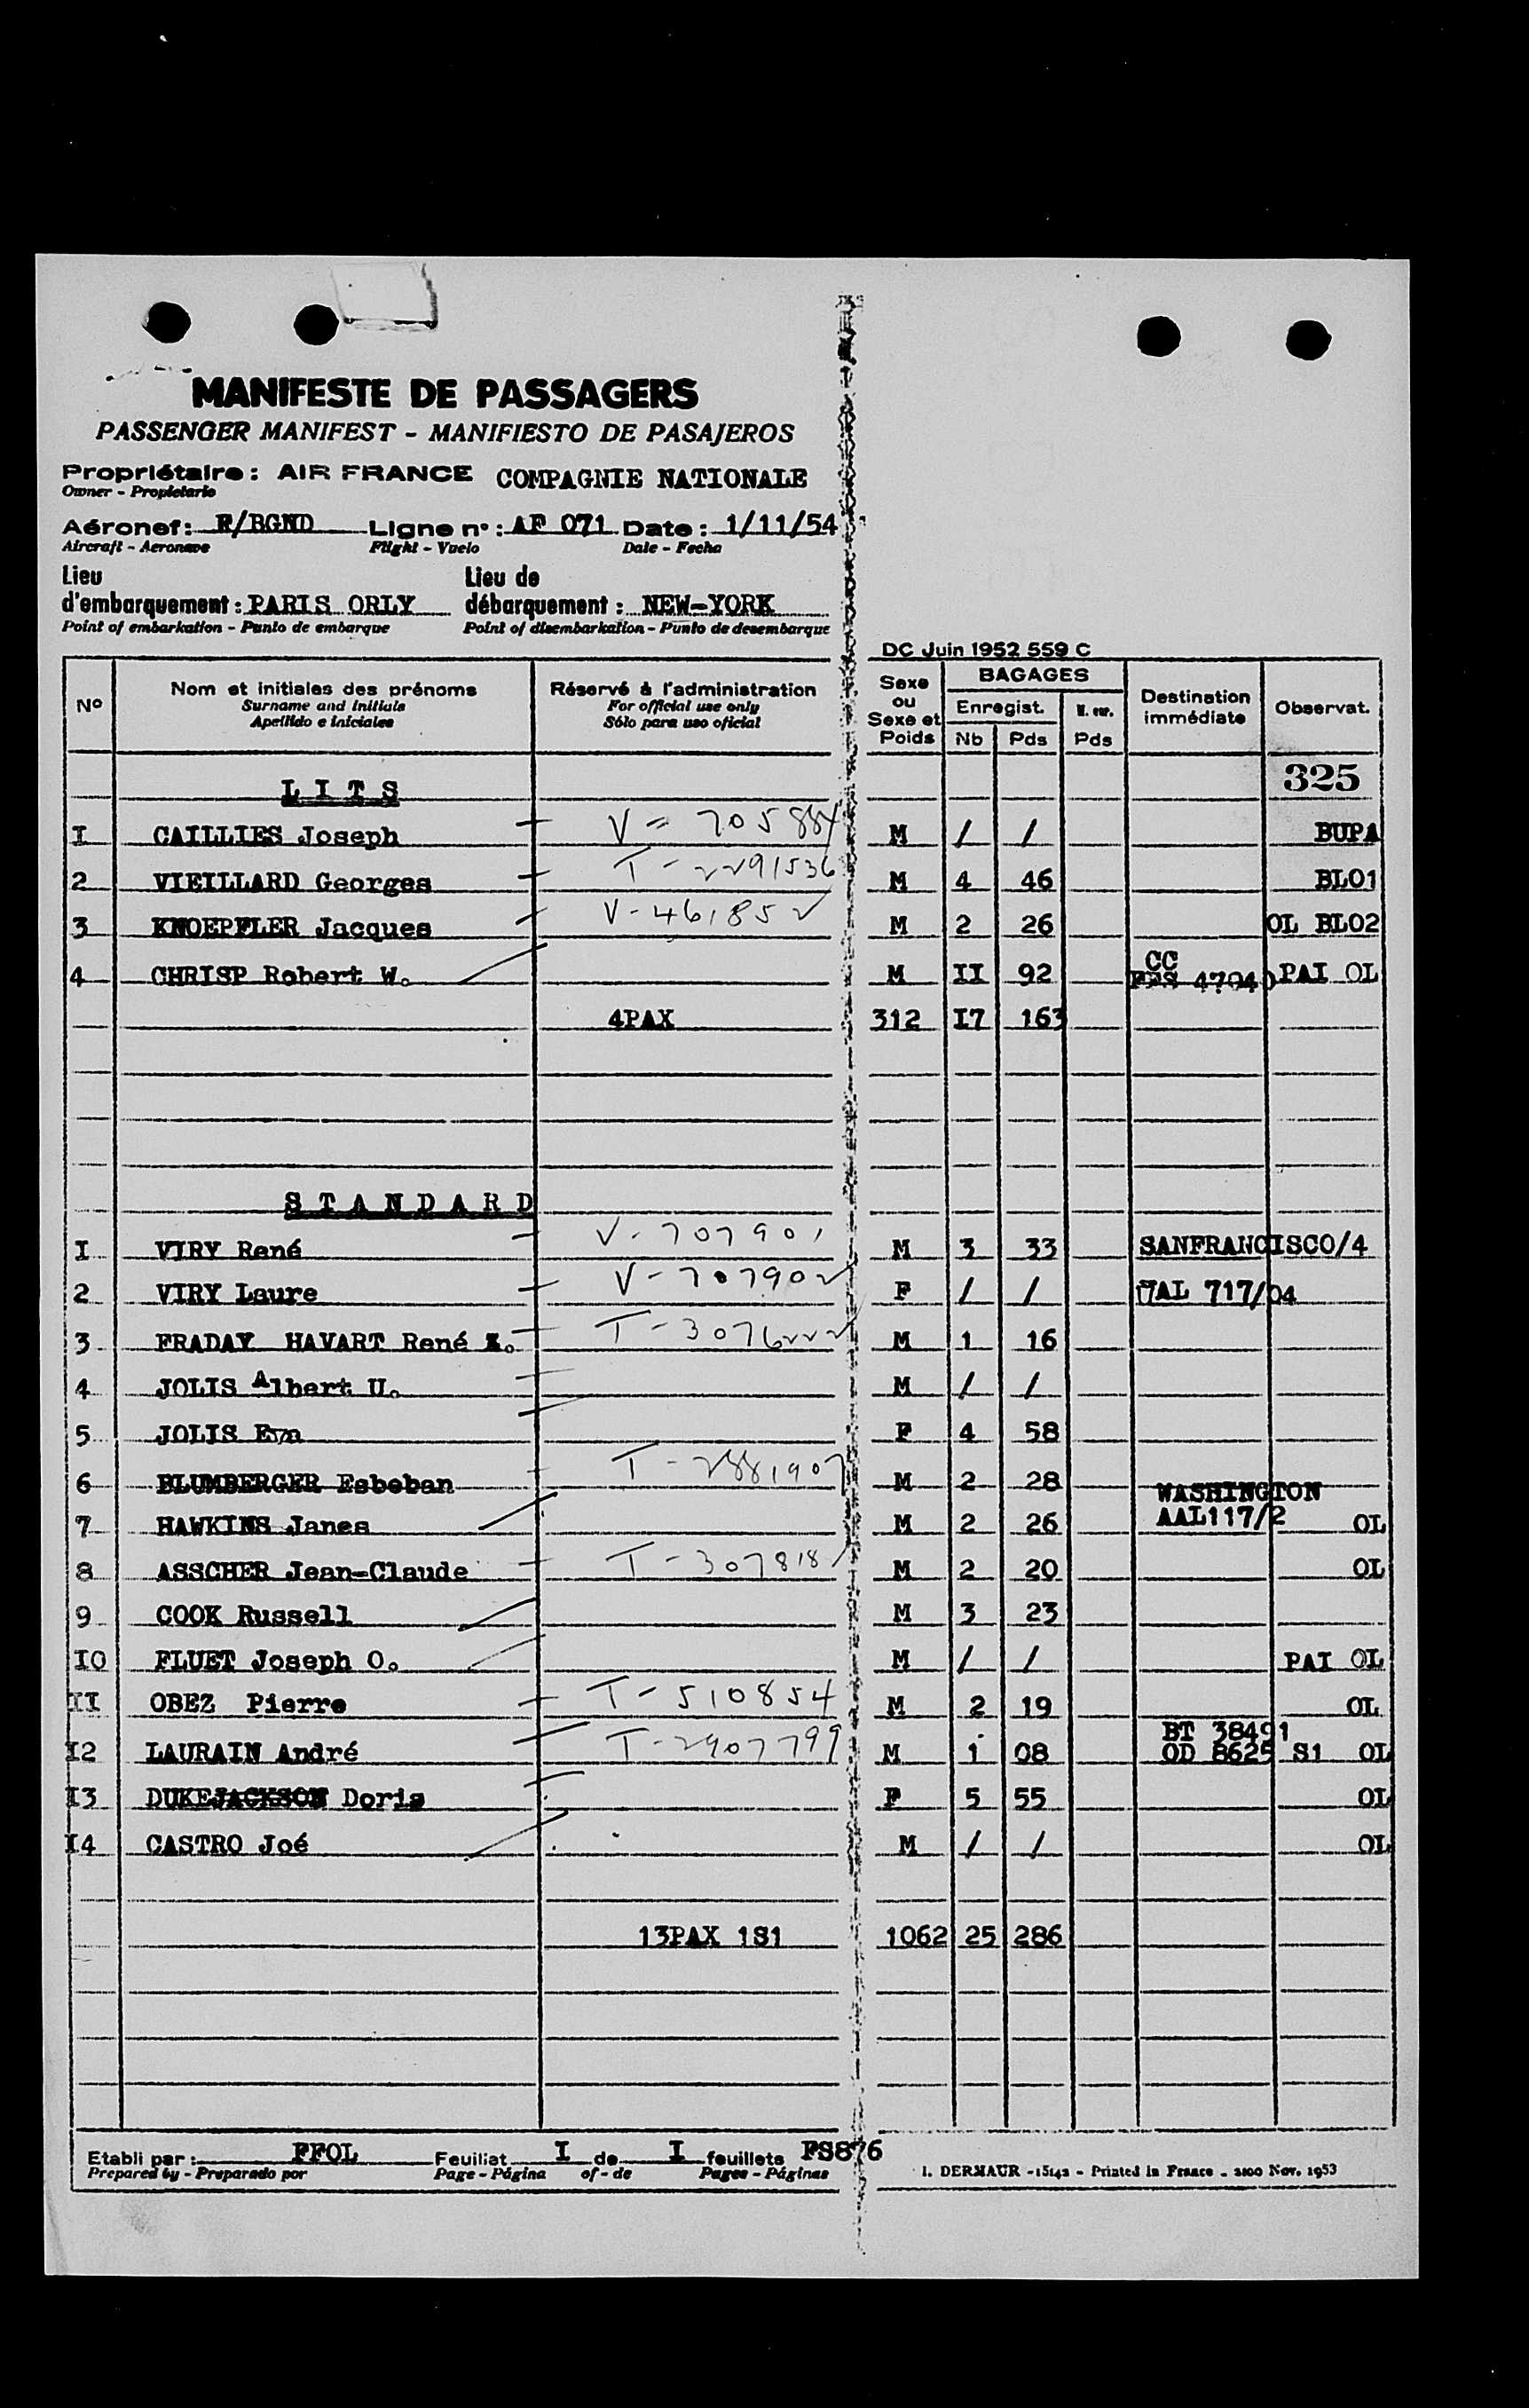 MANIFESTE DE PASSAGERS
PASSENGER MANIFEST - MANIFIESTO DE PASAJEROS
Propriétaire : AIR FRANCE COMPAGNIE NATIONALE
Owner - Propietario
Aéronef : F/BGND Ligne n° : AF 071 Date : 1/11/54
Aircraft - Aeronave Flight - Vuelo Date - Fecha
Lieu Lieu de
d'embarquement : PARIS ORLY débarquement : NEW-YORK
Point of embarkation - Punto de embarque Point of disembarkation - Punto de desembarque
DC Juin 1952 559 C
N° Nom et initiales des prénoms Réservé à l'administration Sexe ou Sexe et Poids BAGAGES Enregist. Nb Pds N. enr. Pds Destination immédiate Observat.
Surname and initials For official use only
Apellido e iniciales Sólo para uso oficial
325
L I T S
I CAILLIES Joseph V = 705884 M / / BUPA
2 VIEILLARD Georges T - 2291536 M 4 46 BL01
3 KNOEPFLER Jacques V - 461852 M 2 26 OL BL02
4 CHRISP Robert W. M II 92 CC 47040 PAI OL
4PAX 312 I7 163
S T A N D A R D
I VIRY René V - 707901 M 3 33 SANFRANCISCO/4
2 VIRY Laure V - 707902 F / / UAL 717/04
3 FRADAY HAVART René X. T - 3076222 M 1 16
4 JOLIS Albert U. M / /
5 JOLIS Eva F 4 58
6 BLUMBERGER Esbeban T - 2881907 M 2 28
WASHINGTON
7 HAWKINS Janes M 2 26 AAL117/2 OL
8 ASSCHER Jean-Claude T - 307818 M 2 20 OL
9 COOK Russell M 3 23
I0 FLUET Joseph O. M / / PAI OL
II OBEZ Pierre T - 510854 M 2 19 OL
BT 38491
I2 LAURAIN André T - 2907799 M 1 08 OD 8625 S1 OL
I3 DUKEJACKSON Doris F 5 55 OL
I4 CASTRO Joé M / / OL
13PAX 1S1 1062 25 286
Etabli par : FFOL Feuillet I de I feuillets FS876
Prepared by - Preparado por Page - Página of - de Pages - Páginas
I. DERMAUR - 15142 - Printed in France - 2100 Nov. 1953